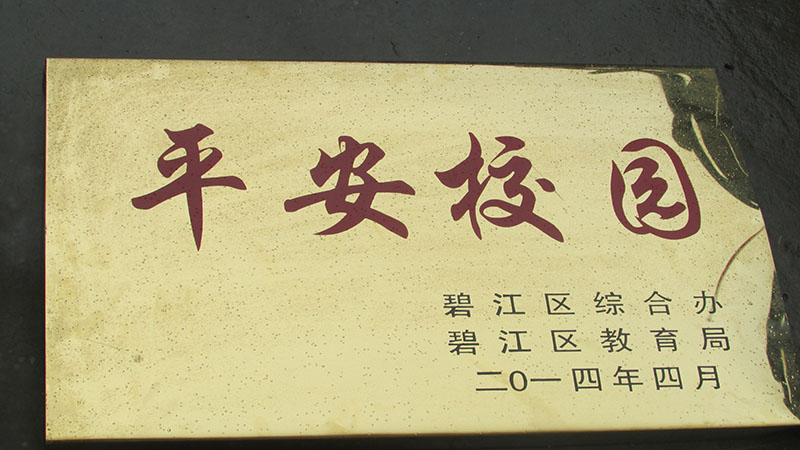 平安校园
碧江区综合办
碧江区教育局
二0一四年四月